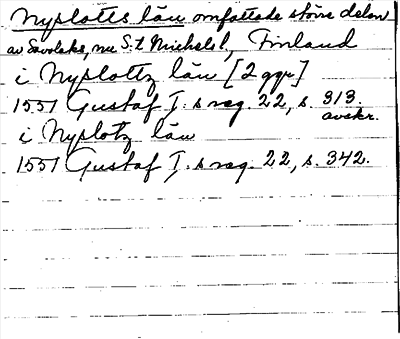 Nyslotts län omfattade större delen
av Savolaks, nu S:t Michels l, Finland
i Nyslottz län [2 ggr]
1551 Gustaf I:s reg. 22, s. 313.
avskr.
i Nyslotz län
1551 Gustaf I:s reg. 22, s. 342.